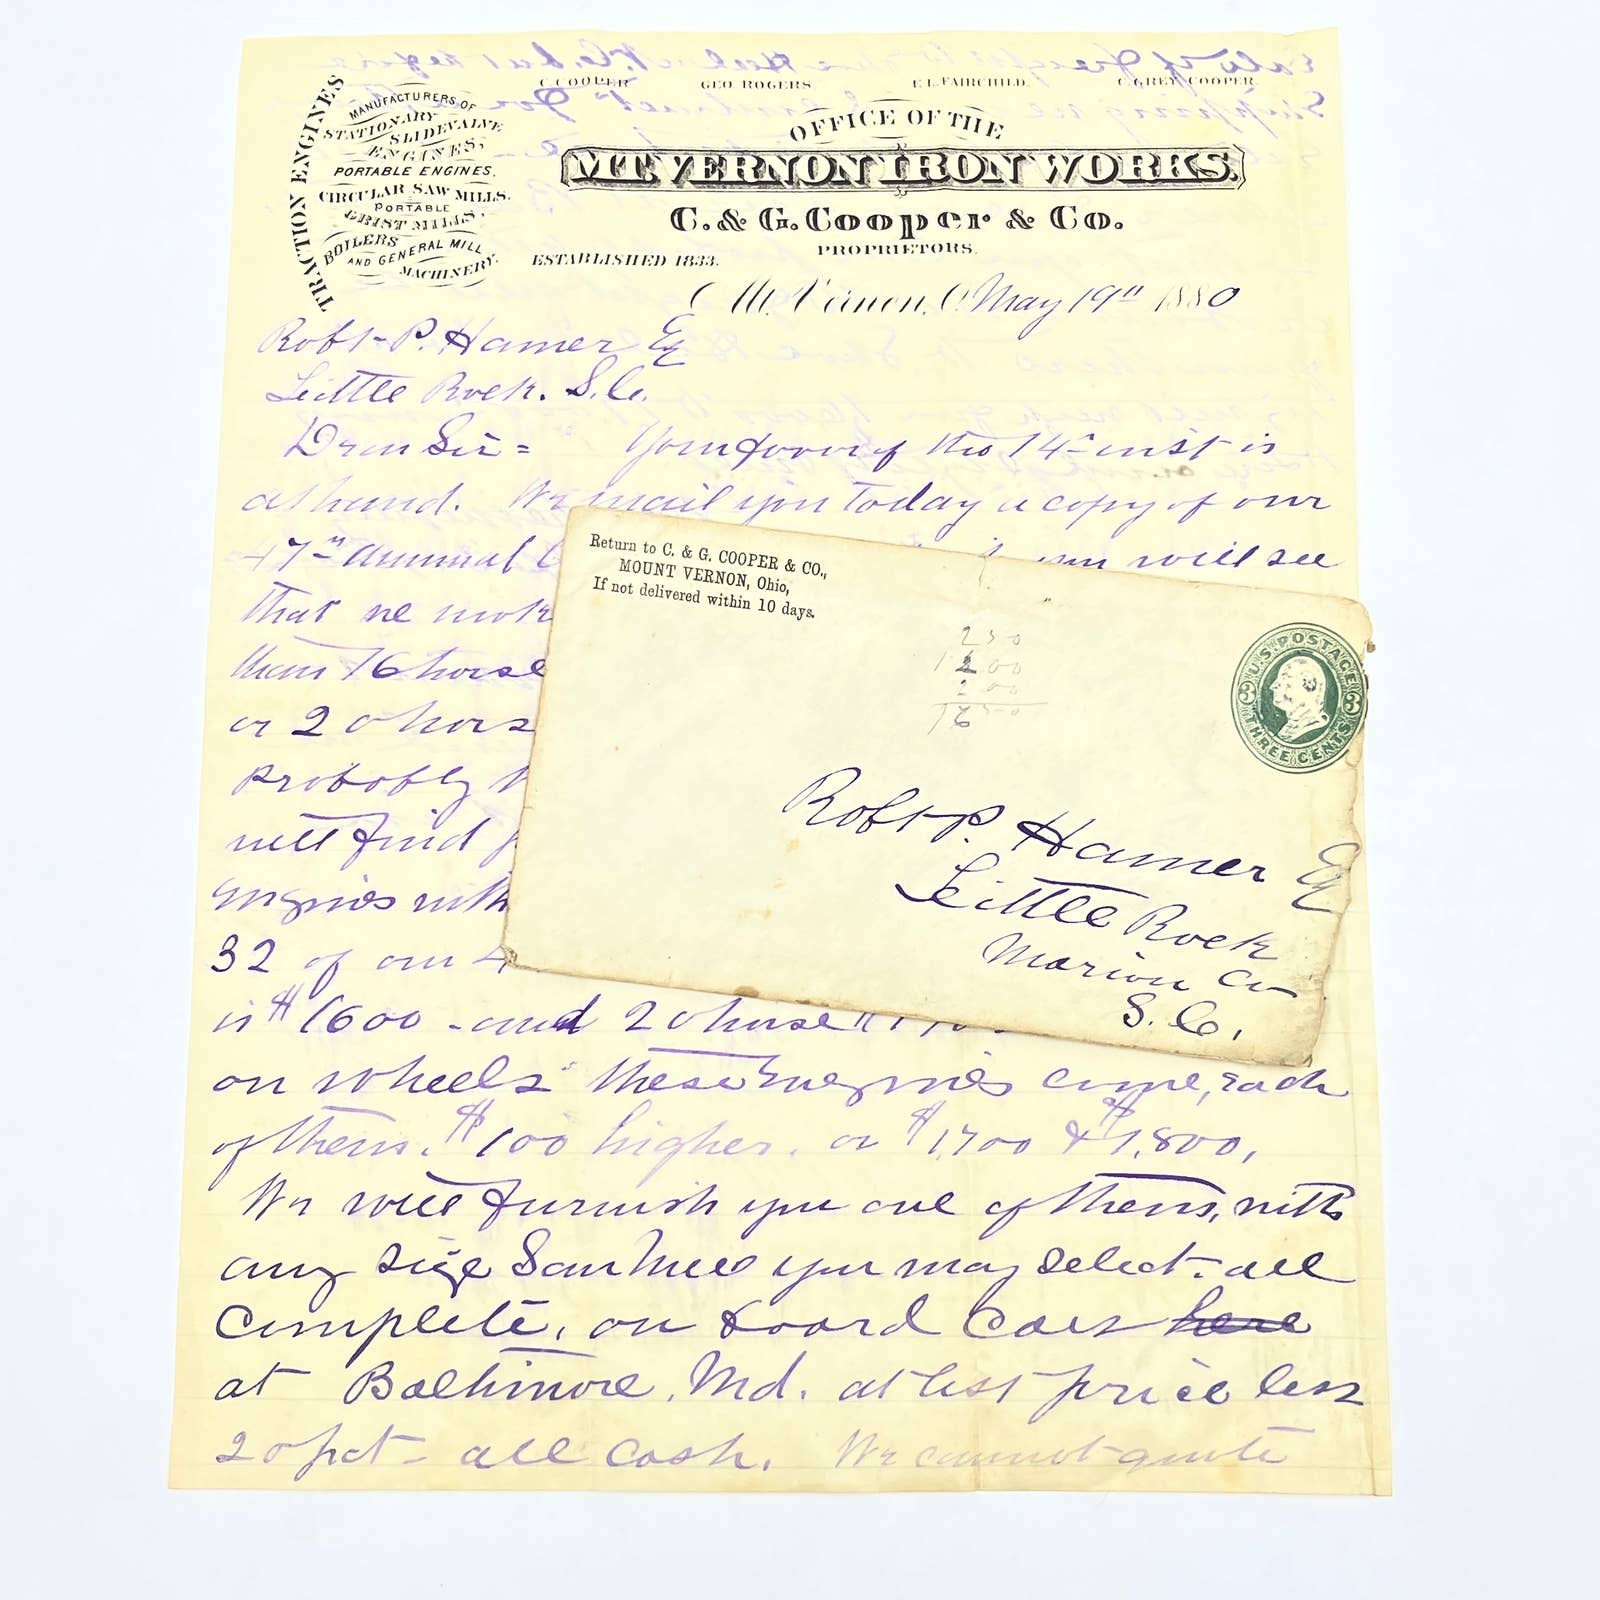 C. COOPER GEO. ROGERS F. L. FAIRCHILD. C. GREY COOPER.
TRACTION ENGINES
MANUFACTURERS OF
STATIONARY
SLIDEVALVE
ENGINES,
PORTABLE ENGINES,
CIRCULAR SAW MILLS.
PORTABLE
GRIST MILLS,
BOILERS
AND GENERAL MILL
MACHINERY.
OFFICE OF THE
MT. VERNON IRON WORKS.
C. & G. Cooper & Co.
PROPRIETORS.
ESTABLISHED 1833.
Mt. Vernon, O. May 19th 1880
Robt P. Hamer Esq
Little Rock. S.C.
Dear Sir = Your favor of the 14th inst is
at hand. We mail you today a copy of our
47th Annual C you will see
that we make
than 16 horse
or 20 horse
probably
will find
engines with
32 of our 4
is $1600 - and 20 horse $17
on wheels these Engines come, each
of them. $100 higher. or $1,700 & $1,800,
We will furnish you one of them, with
any size Saw Mill you may select. all
complete, on board Cars here
at Baltimore, Md. at list price less
20 pct - all cash. We cannot quote
Return to C. & G. COOPER & CO.,
MOUNT VERNON, Ohio,
If not delivered within 10 days.
250
1200
200
1650
U.S. POSTAGE
3 3
THREE CENTS
Robt P. Hamer Esq
Little Rock
Marion Co
S. C.